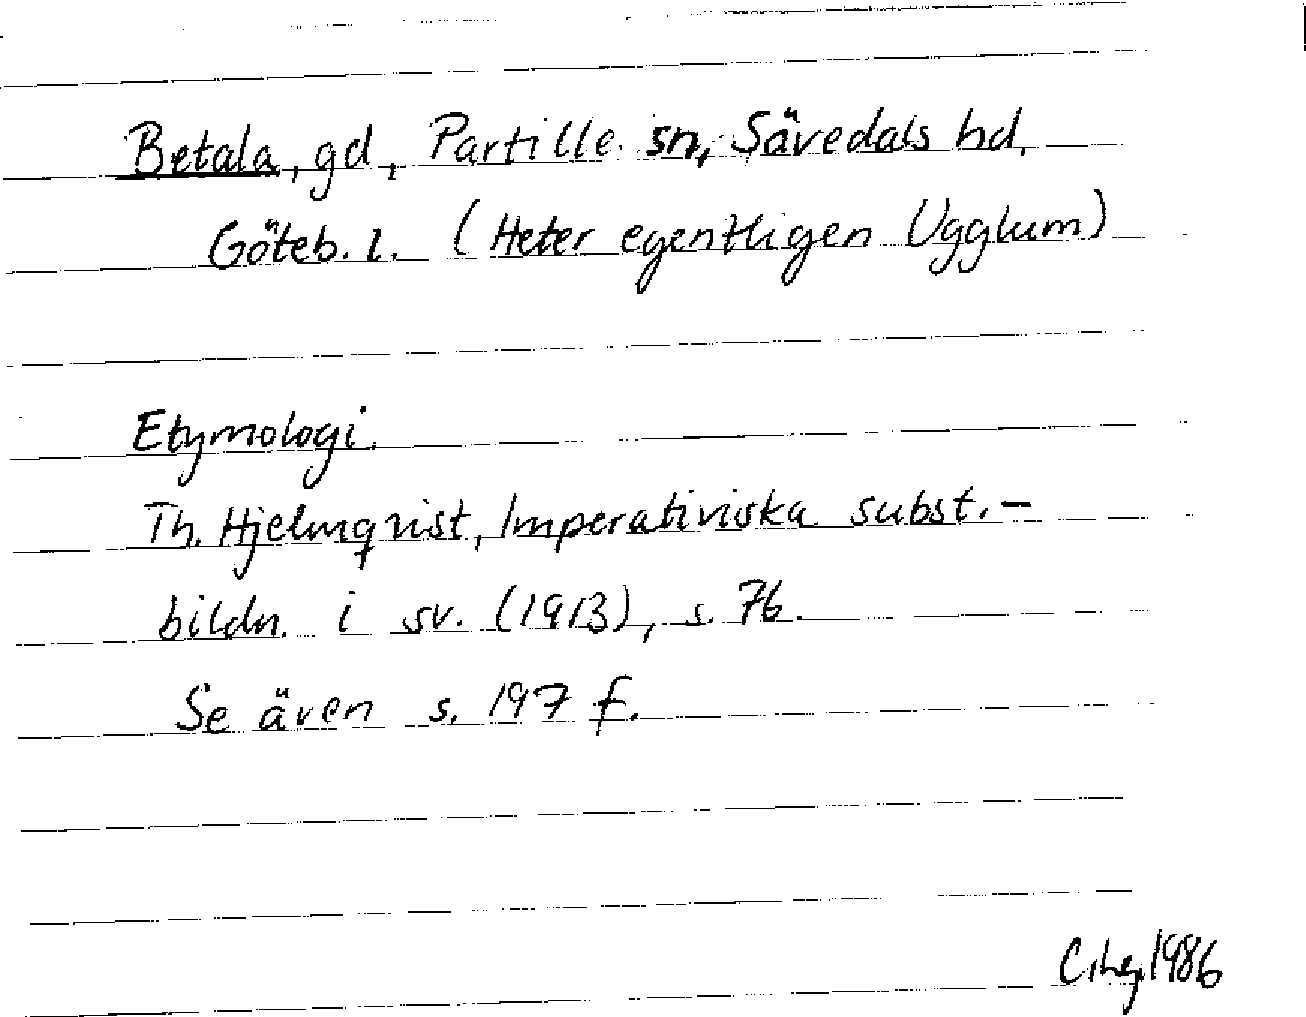 Betala, gd, Partille sn, Sävedals hd,
Göteb. l. (Heter egentligen Ugglum)
Etymologi.
Th. Hjelmqvist, Imperativiska subst.-
bildn. i sv. (1913), s. 76.
Se även s. 197 f.
1986